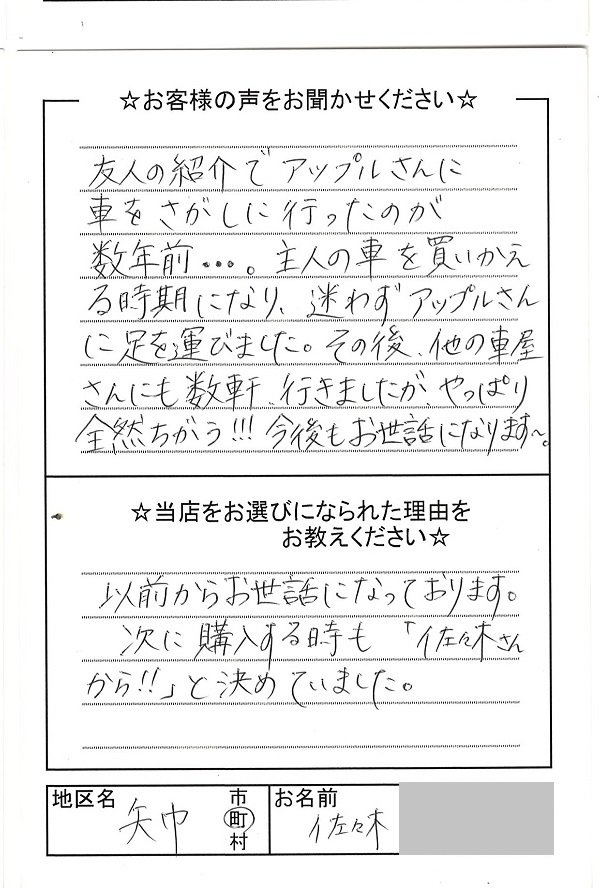 ☆お客様の声をお聞かせください☆
友人の紹介でアップルさんに
車をさがしに行ったのが
数年前…。主人の車を買いかえ
る時期になり、迷わずアップルさん
に足を運びました。その後、他の車屋
さんにも数軒、行きましたが、やっぱり
全然ちがう!!!今後もお世話になります~。
☆当店をお選びになられた理由を
お教えください☆
以前からお世話になっております。
次に購入する時も「佐々木さん
から!!」と決めていました。
地区名 矢巾 市町村 お名前 佐々木